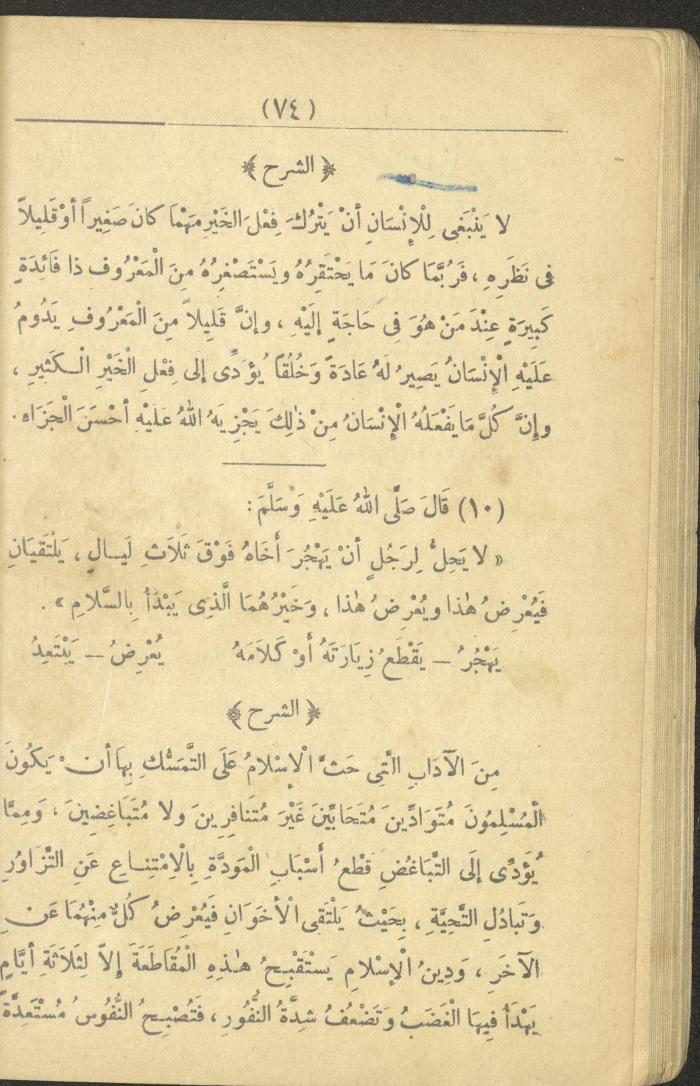 (٧٤)
﴿ الشرح ﴾
لا يَنْبَغِى لِلْإِنْسَانِ أَنْ يَتْرُكَ فِعْلَ الخَيْرِ مَهْمَا كانَ صَغِيراً أوْ قَلِيلاً
فى نَظَرِهِ ، فَرُبَّمَا كانَ مَا يَحْتَقِرُهُ ويَسْتَصْغِرُهُ مِنَ الْمَعْرُوفِ ذا فَائِدَةٍ
كَبِيرَةٍ عِنْدَ مَنْ هُوَ فِى حَاجَةٍ إلَيْهِ ، وإنَّ قَلِيلاً مِنَ الْمَعْرُوفِ يَدُومُ
عَلَيْهِ الْإِنْسَانُ يَصِيرُ لَهُ عَادَةً وَخُلُقًا يُؤَدِّى إلى فِعْلِ الْخَيْرِ الْكَثِيرِ ،
وإنَّ كُلَّ مَا يَفْعَلُهُ الْإِنْسَانُ مِنْ ذٰلِكَ يَجْزِيَهُ اللهُ عَلَيْهِ أحْسَنَ الْجَزَاءِ .
(١٠) قَالَ صَلَّى اللهُ عَلَيْهِ وَسَلَّمَ :
« لا يَحِلُّ لِرَجُلٍ أنْ يَهْجُرَ أَخَاهُ فَوْقَ ثَلَاثِ لَيَـالٍ ، يَلْتَقِيَانِ
فَيُعْرِضُ هٰذا ويُعْرِضُ هٰذا ، وَخَيْرُهُمَا الَّذِى يَبْدَأُ بِالسَّلَامِ » .
يَهْجُرُ — يَقْطَعُ زِيَارَتَهُ أَوْ كَلَامَهُ يُعْرِضُ — يَبْتَعِدُ
﴿ الشرح ﴾
مِنَ الْآدَابِ الَّتِى حَثَّ الْإِسْلَامُ عَلَى التَّمَسُّكِ بِهَا أَنْ يَكُونَ
الْمُسْلِمُونَ مُتَوَادِّينَ مُتَحَابِّينَ غَيْرَ مُتَنَافِرِينَ ولا مُتَبَاغِضِينَ ، وَمِمَّا
يُؤَدِّى إلَى التَّبَاغُضِ قَطْعُ أَسْبَابِ الْمَوَدَّةِ بِالْاِمْتِنَـاعِ عَنِ التَّزَاوُرِ
وَتَبَادُلِ التَّحِيَّةِ ، بِحَيْثُ يَلْتَقِى الْأَخَوَانِ فَيُعْرِضُ كُلٌّ مِنْهُمَا عَنِ
الآخَرِ ، وَدِينُ الْإِسْلَامِ يَسْتَقْبِـحُ هٰـذِهِ الْمُقَاطَعَةَ إِلاَّ لِثَلَاثَةِ أيَّامٍ
يَهْدَأُ فِيهَا الْغَضَبُ وَتَضْعُفُ شِدَّةُ النُّفُورِ ، فَتُصْبِـحُ النُّفُوسُ مُسْتَعِدَّةً